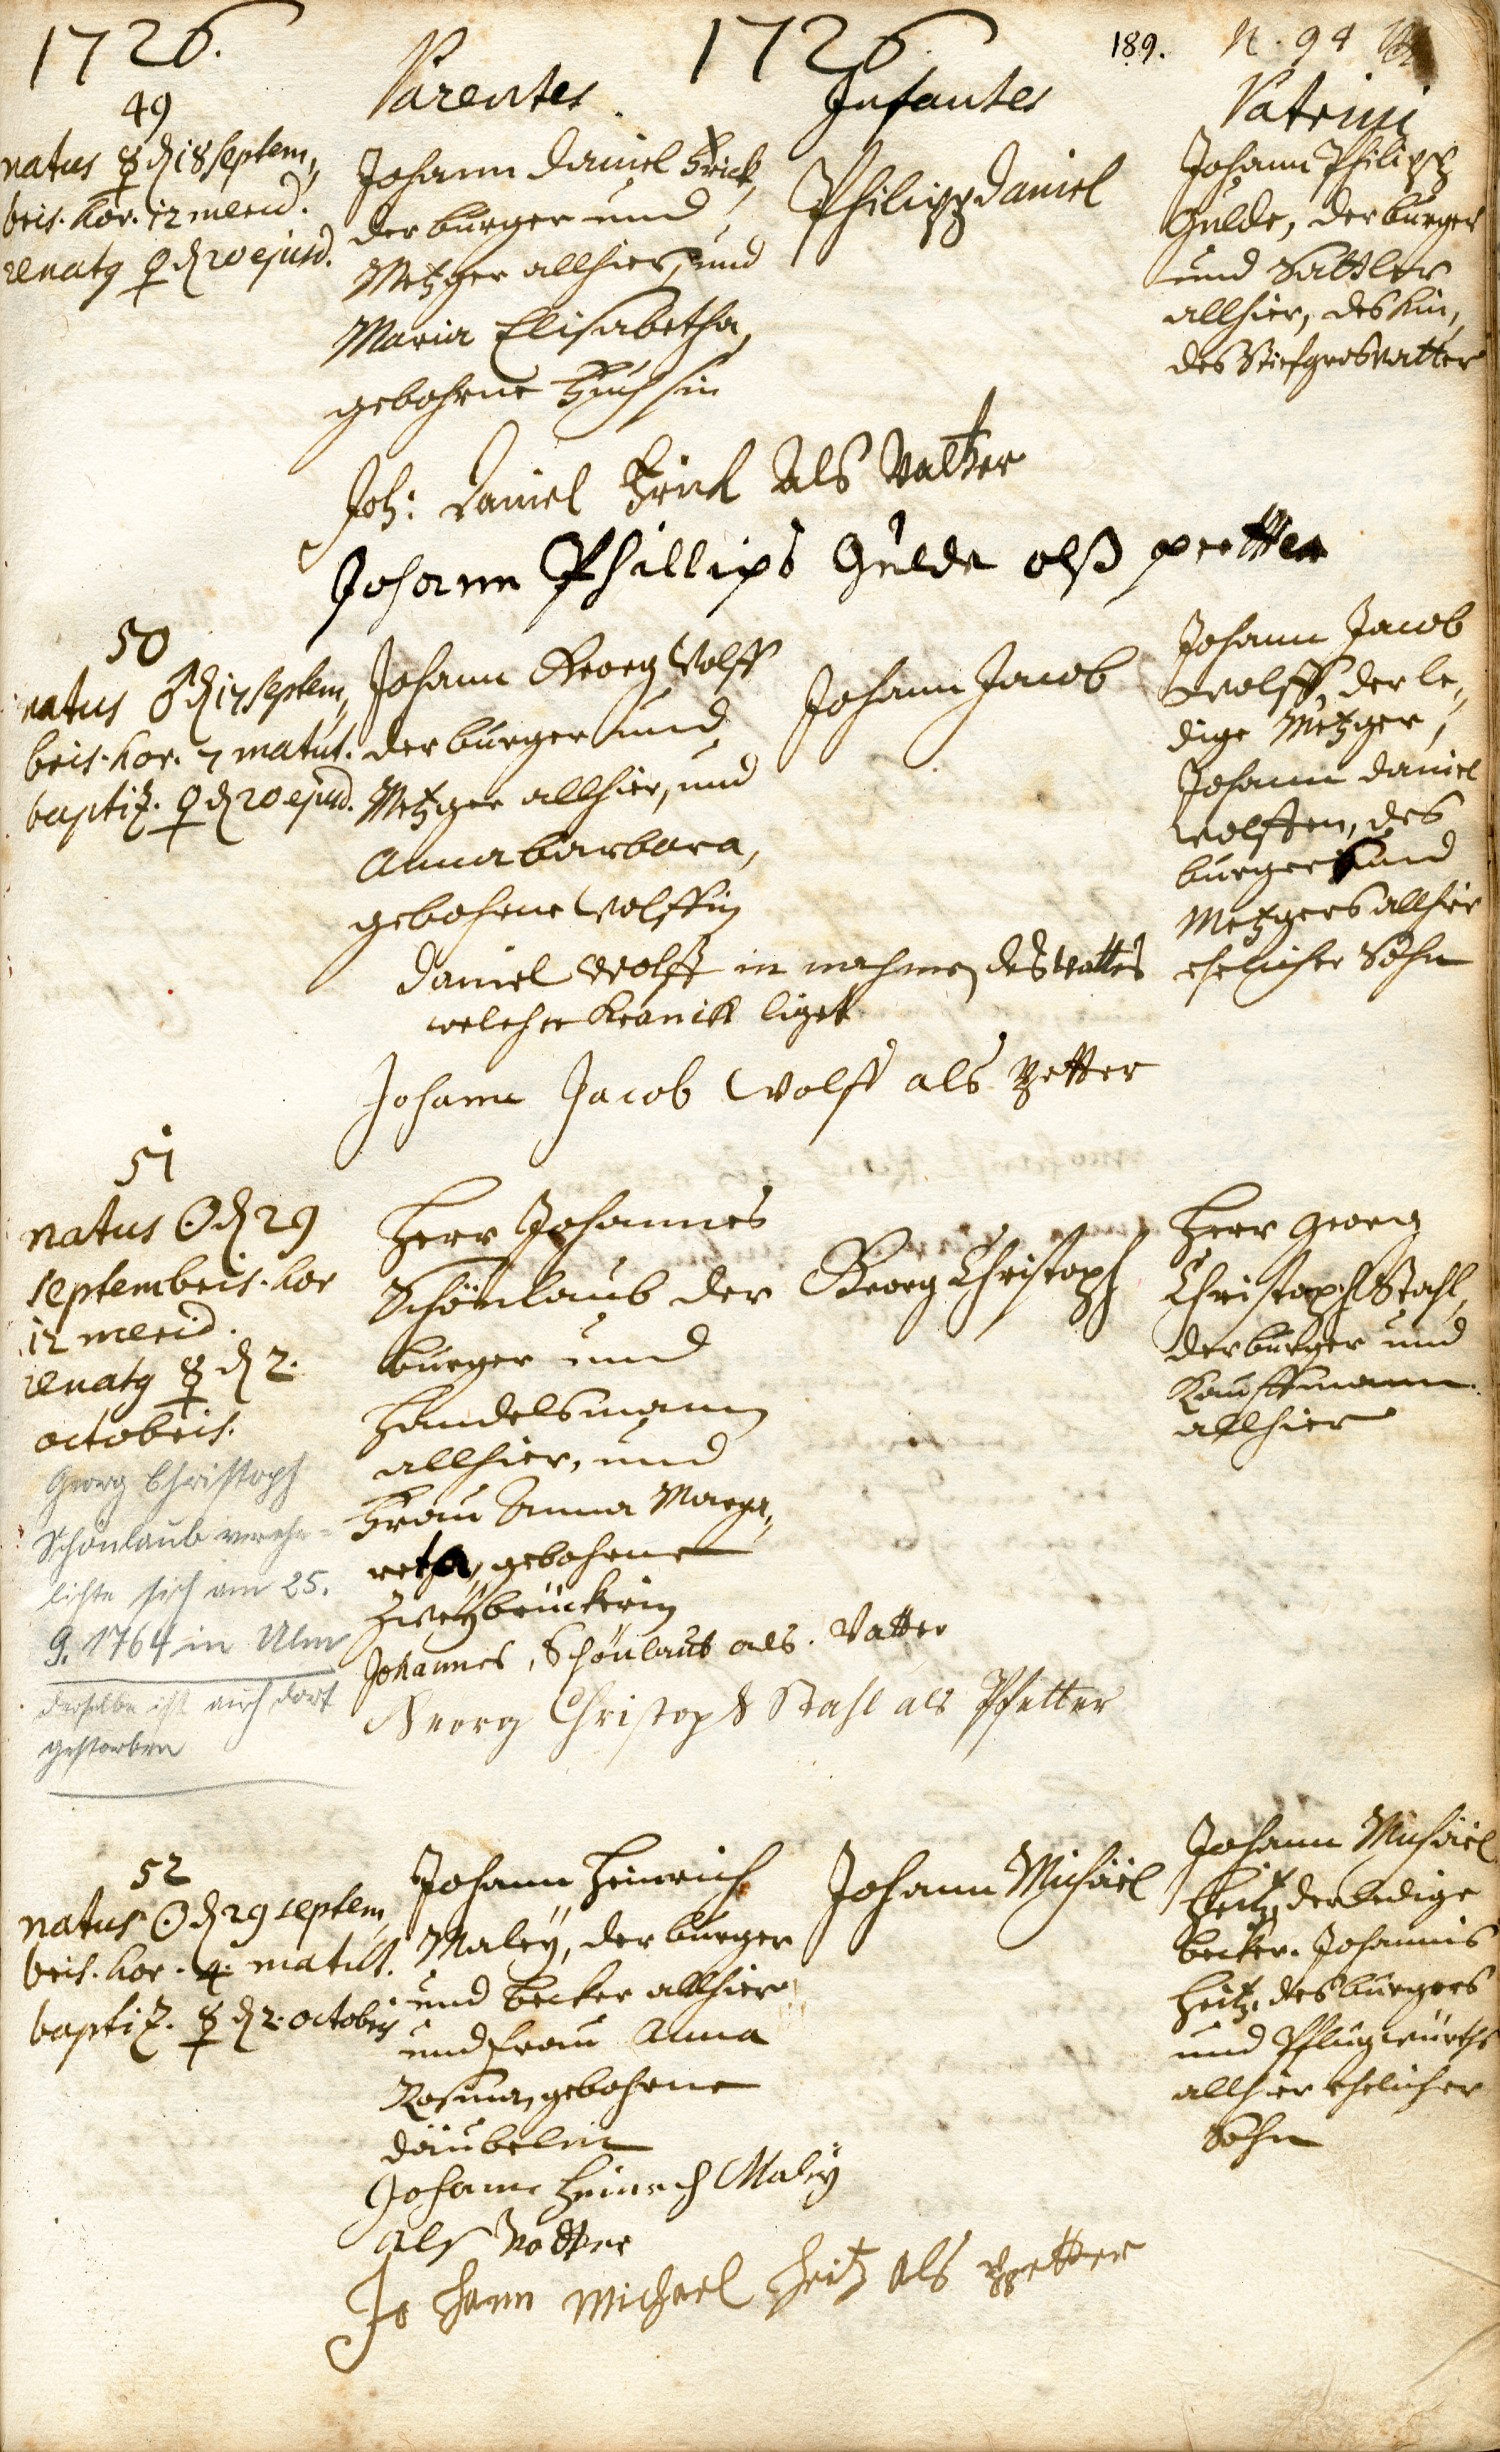 1726. 1726. 189. N. 94
Parentes Infantes Patrini
49
natus ☿ d. 18 Septem„
bris. hor. 12 merid.
renatg ♀ d. 20 ejusd.
Johann Daniel Frick,
der burger und
Metzger allhier, und
Maria Elisabetha,
gebohrne Fuchsin
Philipp Daniel
Johann Philipp
Gulde, der burger
und Sattler
allhier, des Kin„
des Stiefgrosvatter
Joh: Daniel Frick Als Vatter
Johann Phillips Gulde alß pfetter
50
natus ♂ d. 17 Septem„
bris. hor. 7 matut.
baptiz. ♀ d. 20 ejusd.
Johann Georg Wolff
der burger und
Metzger allhier, und
Anna barbara,
gebohrne Wolffin
Johann Jacob
Johann Jacob
Wolff, der le„
dige Metzger,
Johann Daniel
Wolffen, des
burgers und
Metzgers allhier
ehelicher Sohn
Daniel Wolff in nahmen des Vatters
welcher kranck liget
Johann Jacob Wolff als Pfetter
51
natus ☉ d. 29
Septembris. hor
12 merid.
renatg ☿ d. 2.
octobris.
Georg Christoph
Schönlaub verehe=
lichte sich am 25.
9. 1764 in Ulm
derselbe ist auch dort
gestorben
Herr Johannes
Schönlaub der
burger und
Handelsmann
allhier, und
Frau Anna Marga„
retha, gebohrne
Zweÿbrückerin
Georg Christoph
Herr Georg
Christoph Stahl,
der burger und
Kauffmann
allhier
Johannes, Schönlaub als. Vatter
Georg Christoph Stahl als Pfetter
52
natus ☉ d. 29 Septem„
bris. hor. 4. matut.
baptiz. ☿ d. 2. octobris
Johann Heinrich
Maleÿ, der burger
und becker allhier
und Frau Anna
Rosina, gebohrne
Däubelin
Johann Michäel
Johann Michäel
Heitz, der ledige
becker. Johannis
Heitz, des burgers
und Pflugwürths
allhier ehelicher
Sohn
Johann Heinrich Maleÿ
als Vatter
Johann Michael Heitz als Pfetter